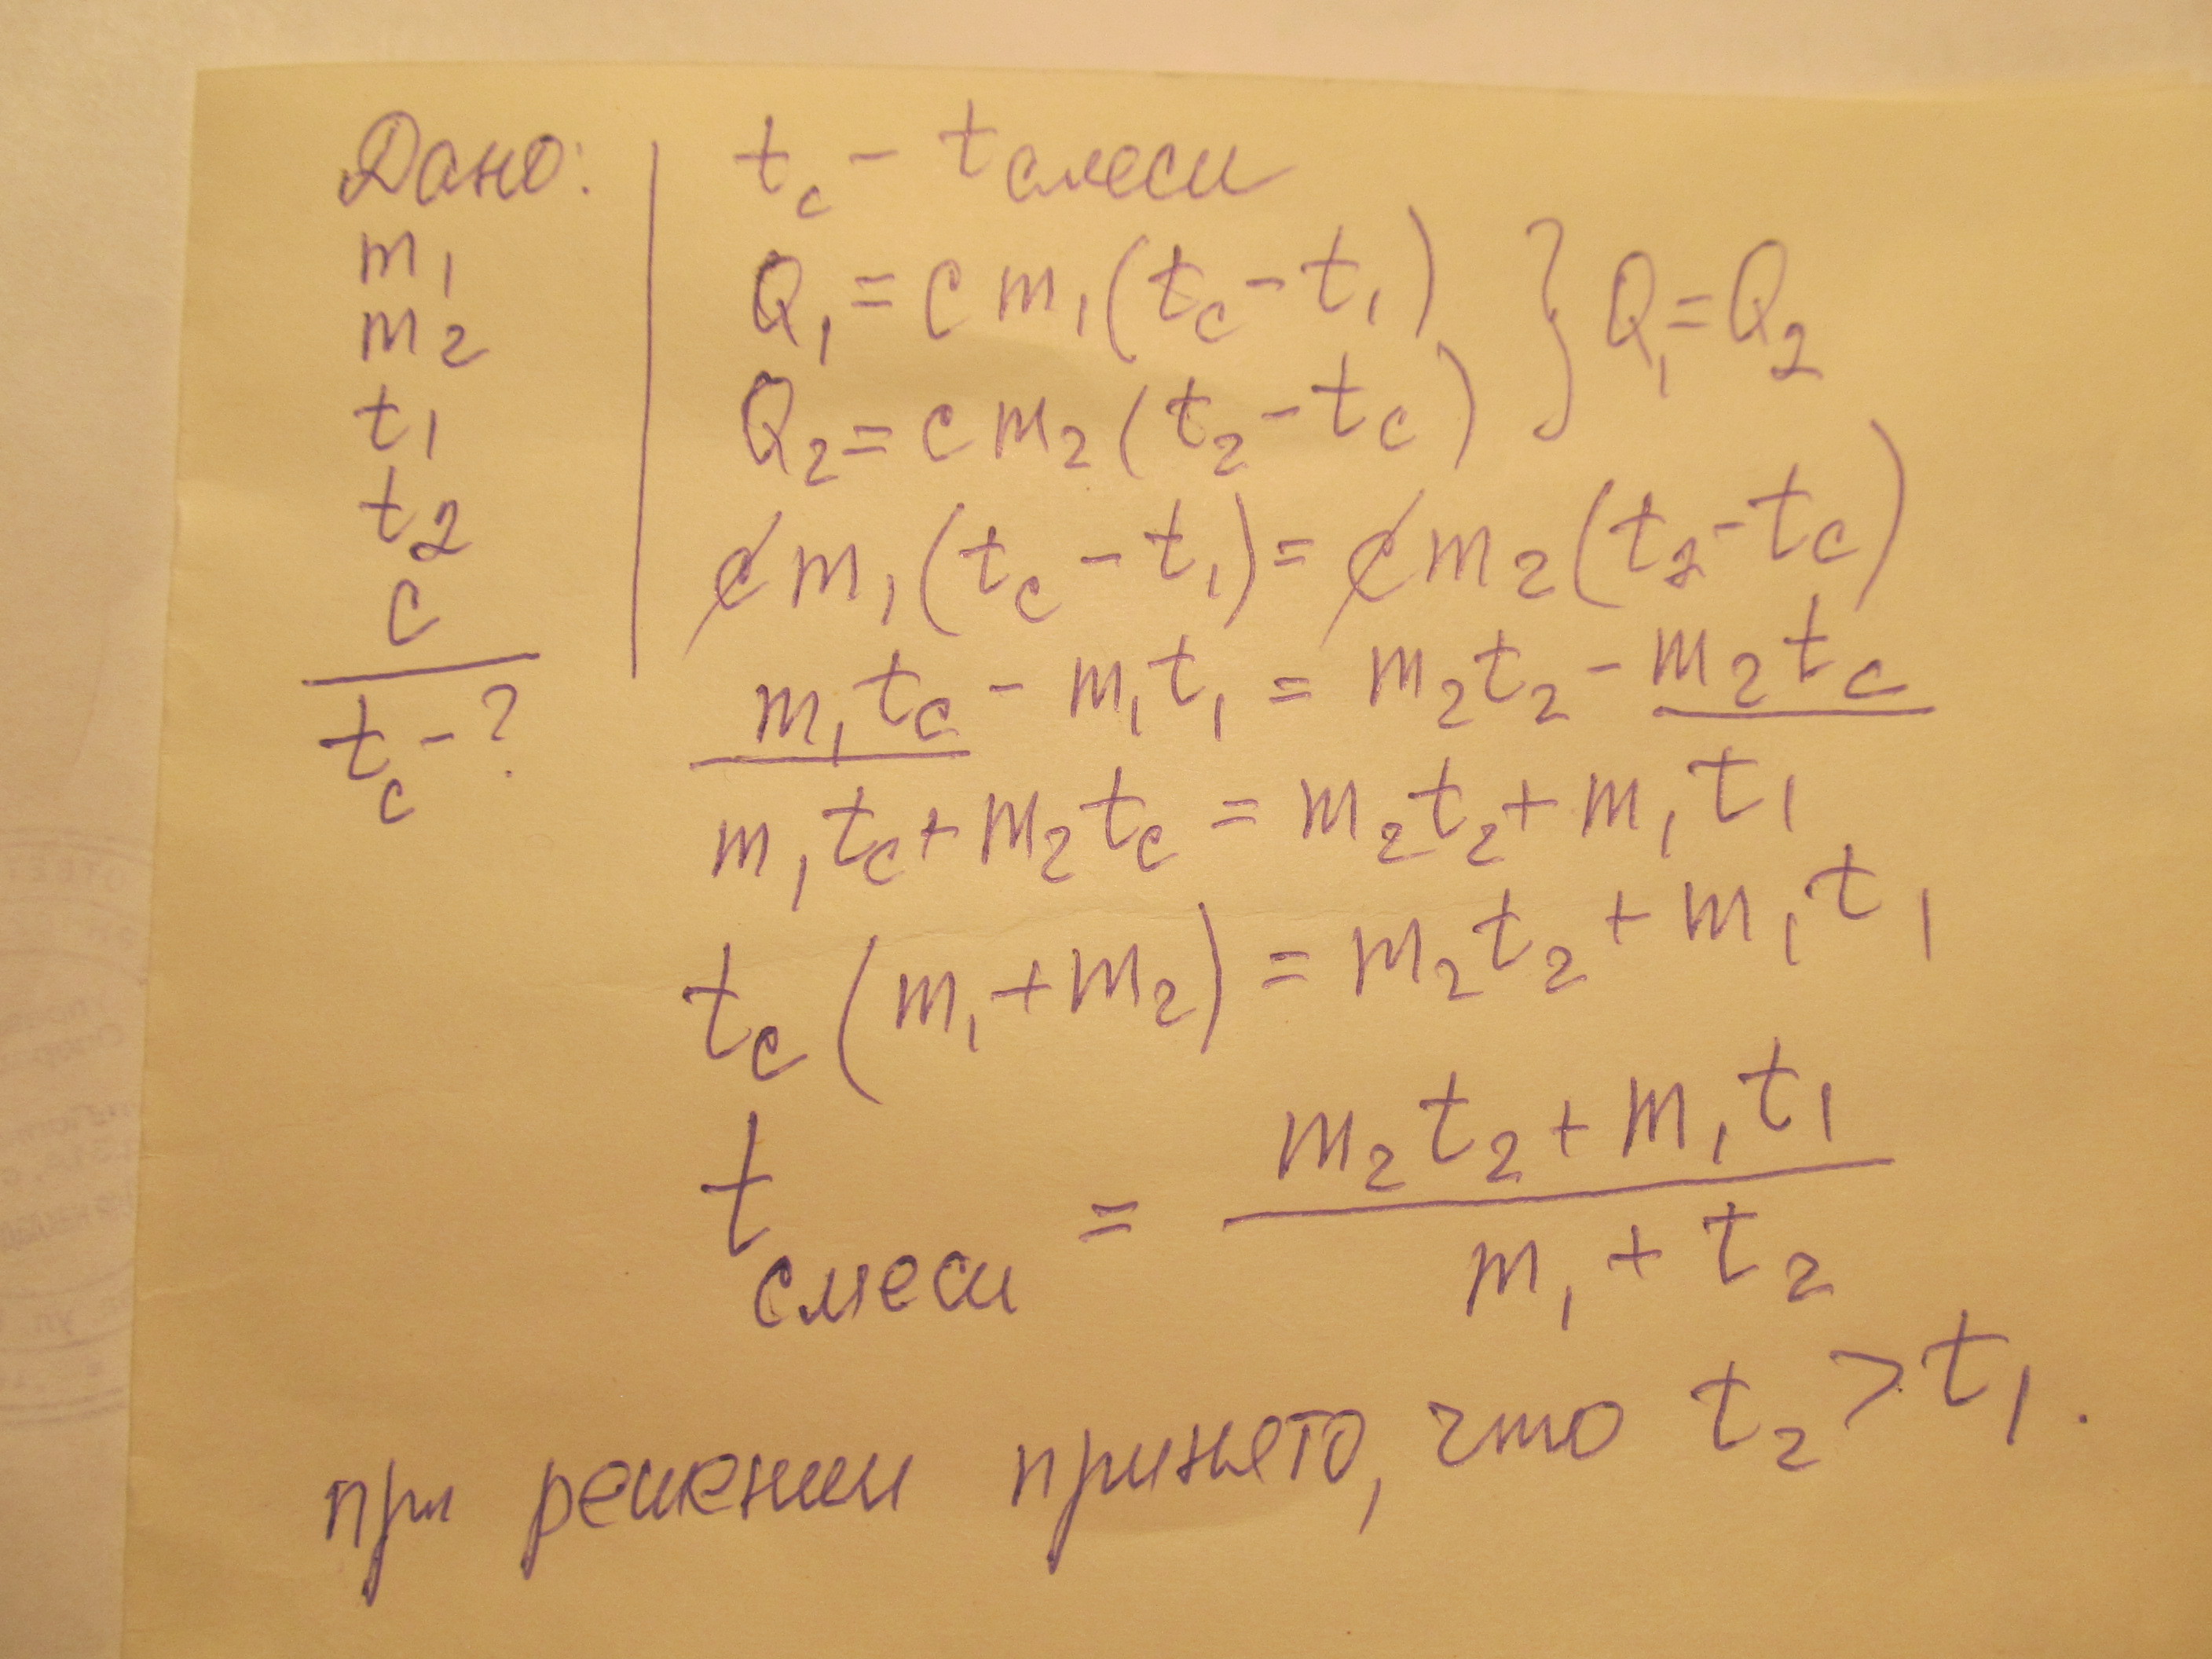 Дано:
m₁
m₂
t₁
t₂
c
t_c - ?
t_c - t смеси
Q₁ = c m₁ (t_c - t₁)
Q₂ = c m₂ (t₂ - t_c)
} Q₁ = Q₂
c m₁ (t_c - t₁) = c m₂ (t₂ - t_c)
m₁ t_c - m₁ t₁ = m₂ t₂ - m₂ t_c
m₁ t_c + m₂ t_c = m₂ t₂ + m₁ t₁
t_c (m₁ + m₂) = m₂ t₂ + m₁ t₁
t смеси = (m₂ t₂ + m₁ t₁) / (m₁ + t₂)
при решении принято, что t₂ > t₁.